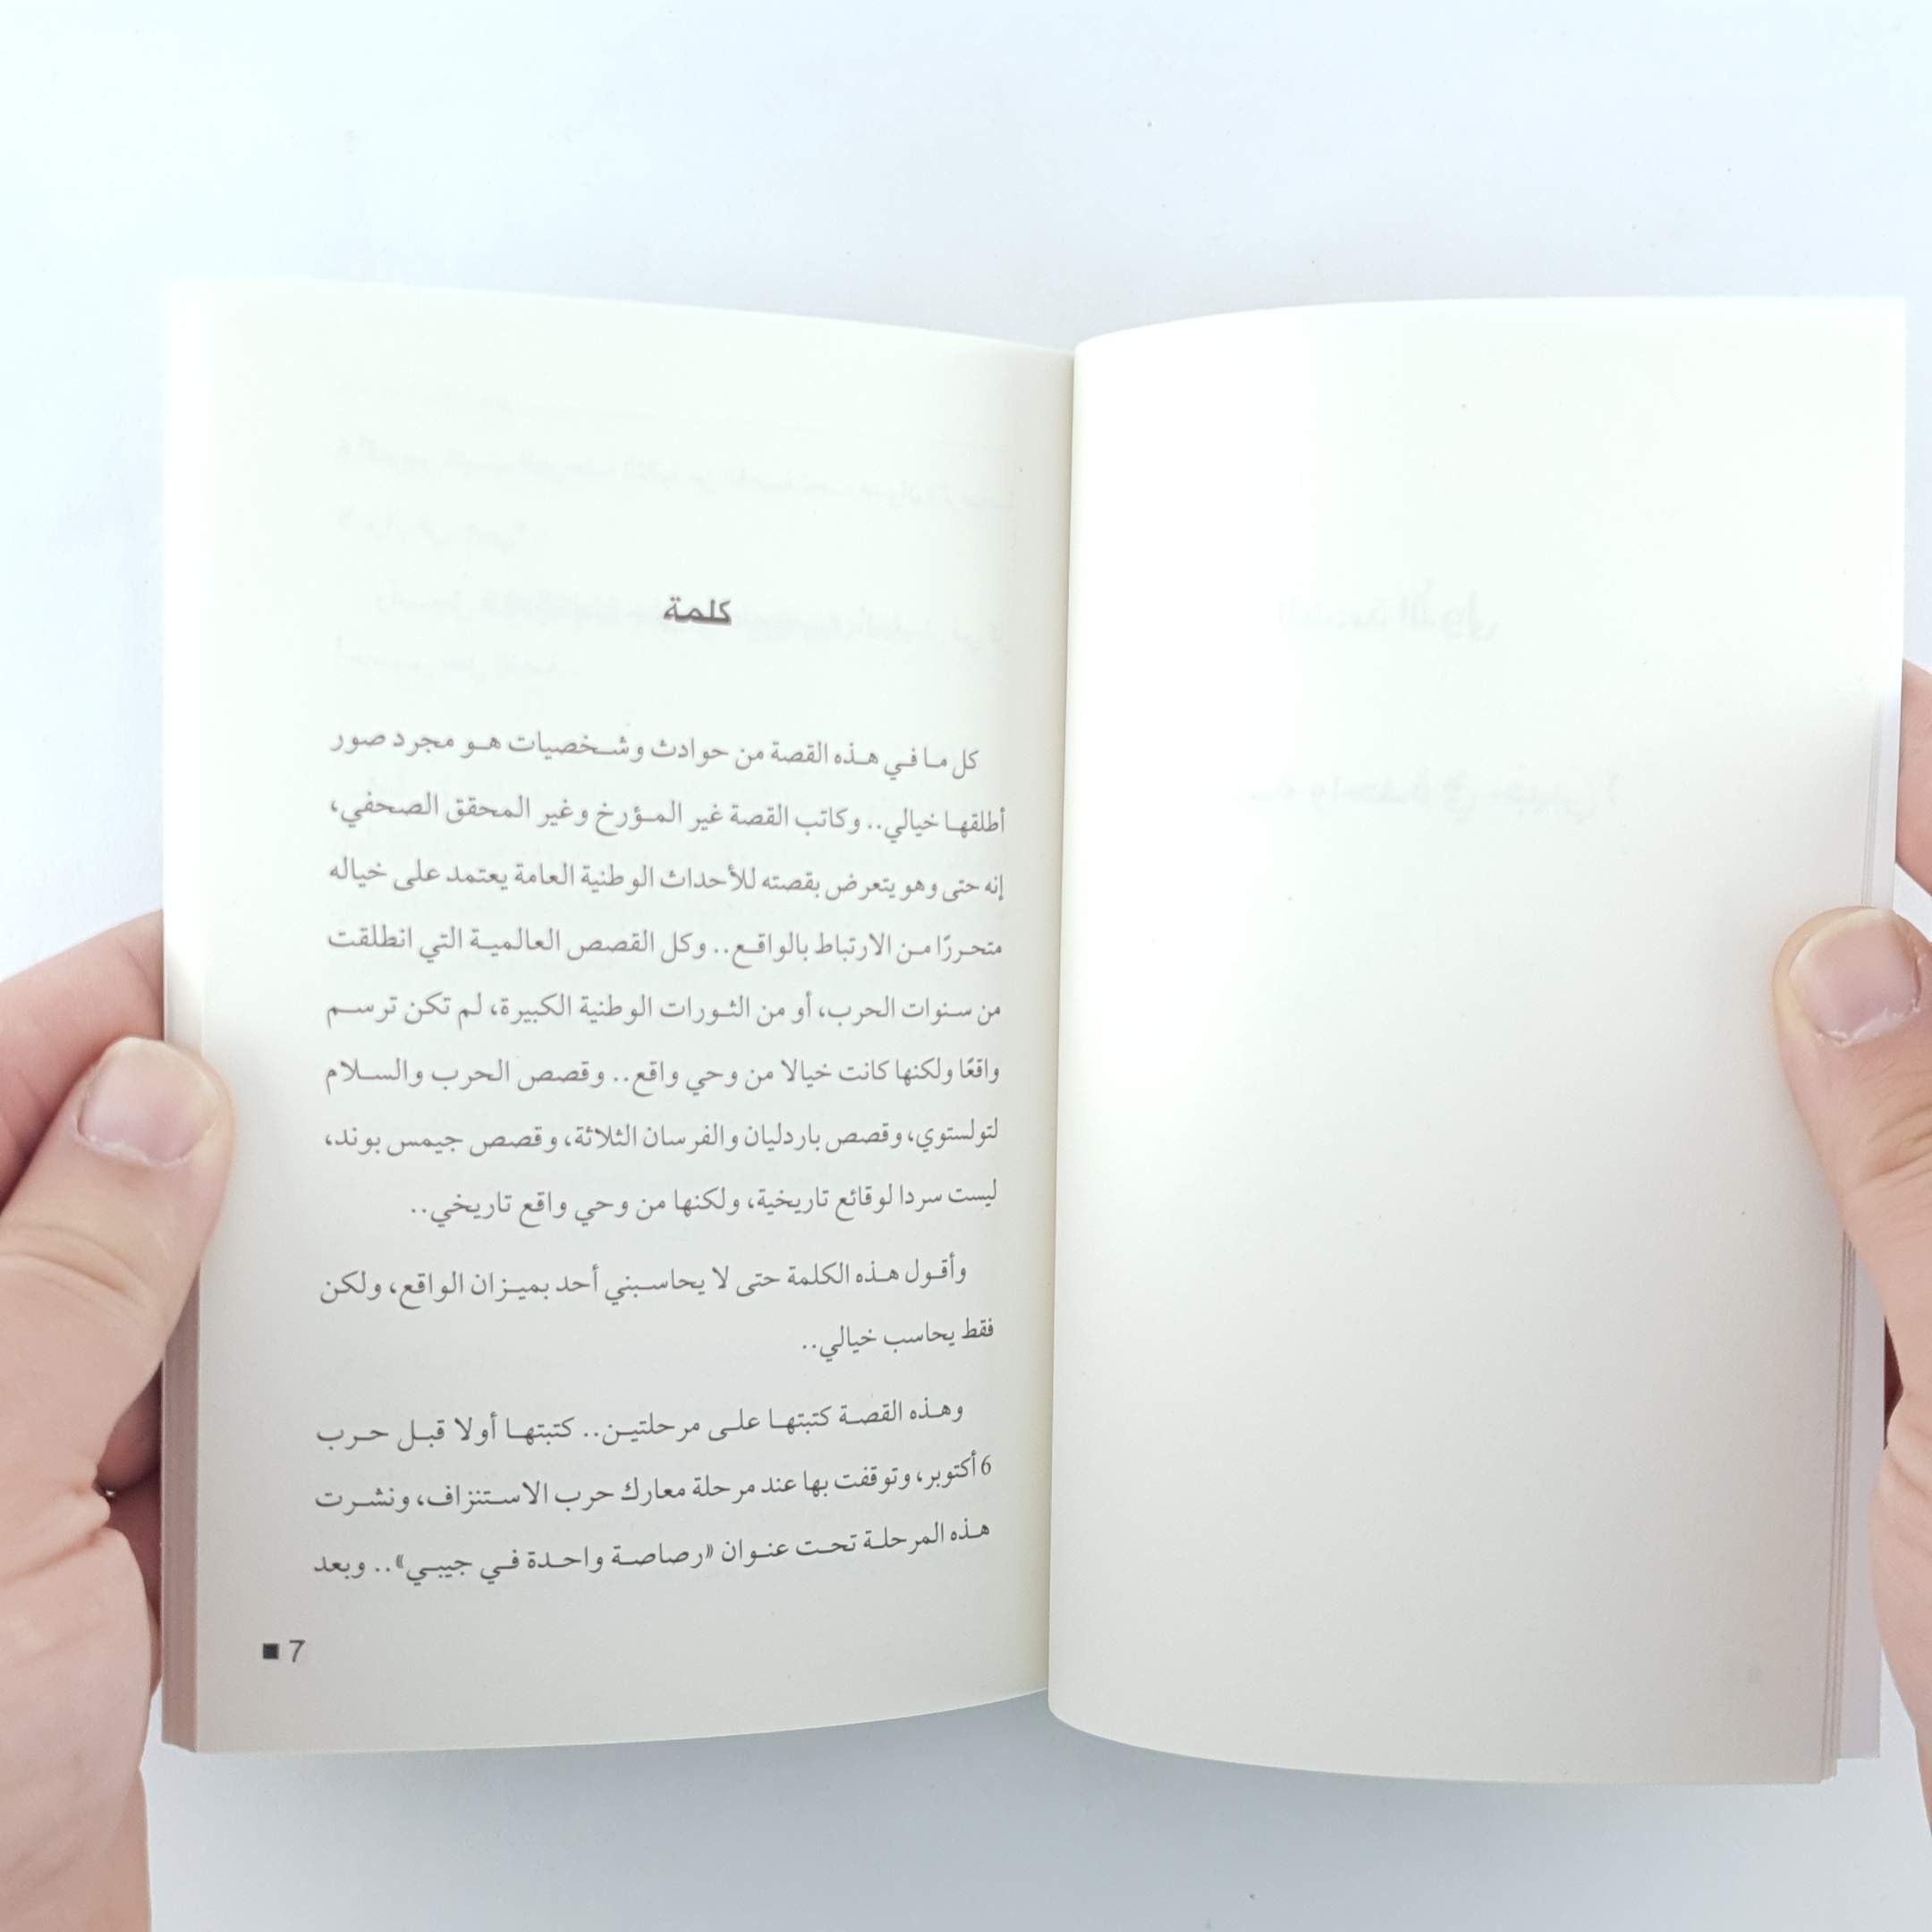 كلمة
كل ما في هذه القصة من حوادث وشخصيات هو مجرد صور
أطلقها خيالي.. وكاتب القصة غير المؤرخ وغير المحقق الصحفي،
إنه حتى وهو يتعرض بقصته للأحداث الوطنية العامة يعتمد على خياله
متحررًا من الارتباط بالواقع.. وكل القصص العالمية التي انطلقت
من سنوات الحرب، أو من الثورات الوطنية الكبيرة، لم تكن ترسم
واقعًا ولكنها كانت خيالا من وحي واقع.. وقصص الحرب والسلام
لتولستوي، وقصص باردليان والفرسان الثلاثة، وقصص جيمس بوند،
ليست سردا لوقائع تاريخية، ولكنها من وحي واقع تاريخي..
وأقول هذه الكلمة حتى لا يحاسبني أحد بميزان الواقع، ولكن
فقط يحاسب خيالي..
وهذه القصة كتبتها على مرحلتين.. كتبتها أولا قبل حرب
6 أكتوبر، وتوقفت بها عند مرحلة معارك حرب الاستنزاف، ونشرت
هذه المرحلة تحت عنوان «رصاصة واحدة في جيبي».. وبعد
7 ■